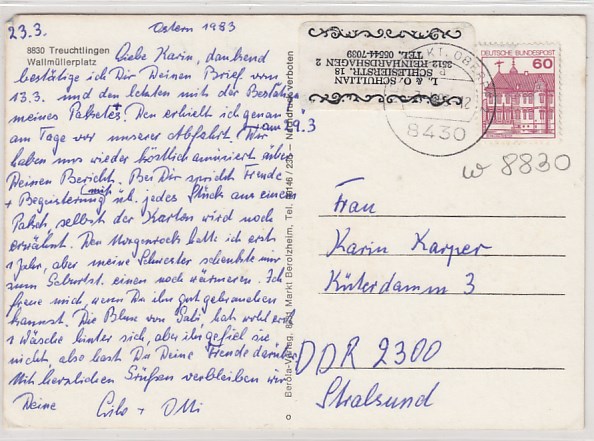 23.3. Ostern 1983
8830 Treuchtlingen
Wallmüllerplatz
Liebe Karin, dankend
bestätige ich Dir Deinen Brief vom
13.3. und den letzten mit der Bestätig
meines Paketes. Den erhielt ich genau
am Tage vor unserer Abfahrt. Wir
am 19.3
haben uns wieder köstlich amüsiert über
Deinen Bericht. Bei Dir spricht Freude
+ Begeisterung mit. jedes Stück aus einem
Paket, selbst der Karton wird noch
erwähnt. Den Morgenrock hatte ich erst
1 Jahr, aber meine Schwester schenkte mir
zum Geburtst. einen noch wärmeren. Ich
freue mich, wenn Du ihn gut gebrauchen
kannst. Die Bluse von Gabi, hat wohl erst
1 Wäsche hinter sich, aber ihr gefiel sie
nicht, also hast Du Deine Freude darüber
Mit herzlichen Grüßen verbleiben wir
Deine + Otti
Berola-Verlag, 8831 Markt Berolzheim, Tel. 09146/235 – Nachdruck verboten
L. & O. SCHULLIAN
SCHLESIERSTR. 18
3512 REINHARDSHAGEN 2
TEL. 05544-7039
DEUTSCHE BUNDESPOST
60
8430
w 8830
Frau
Karin Karper
Küterdamm 3
DDR 2300
Stralsund